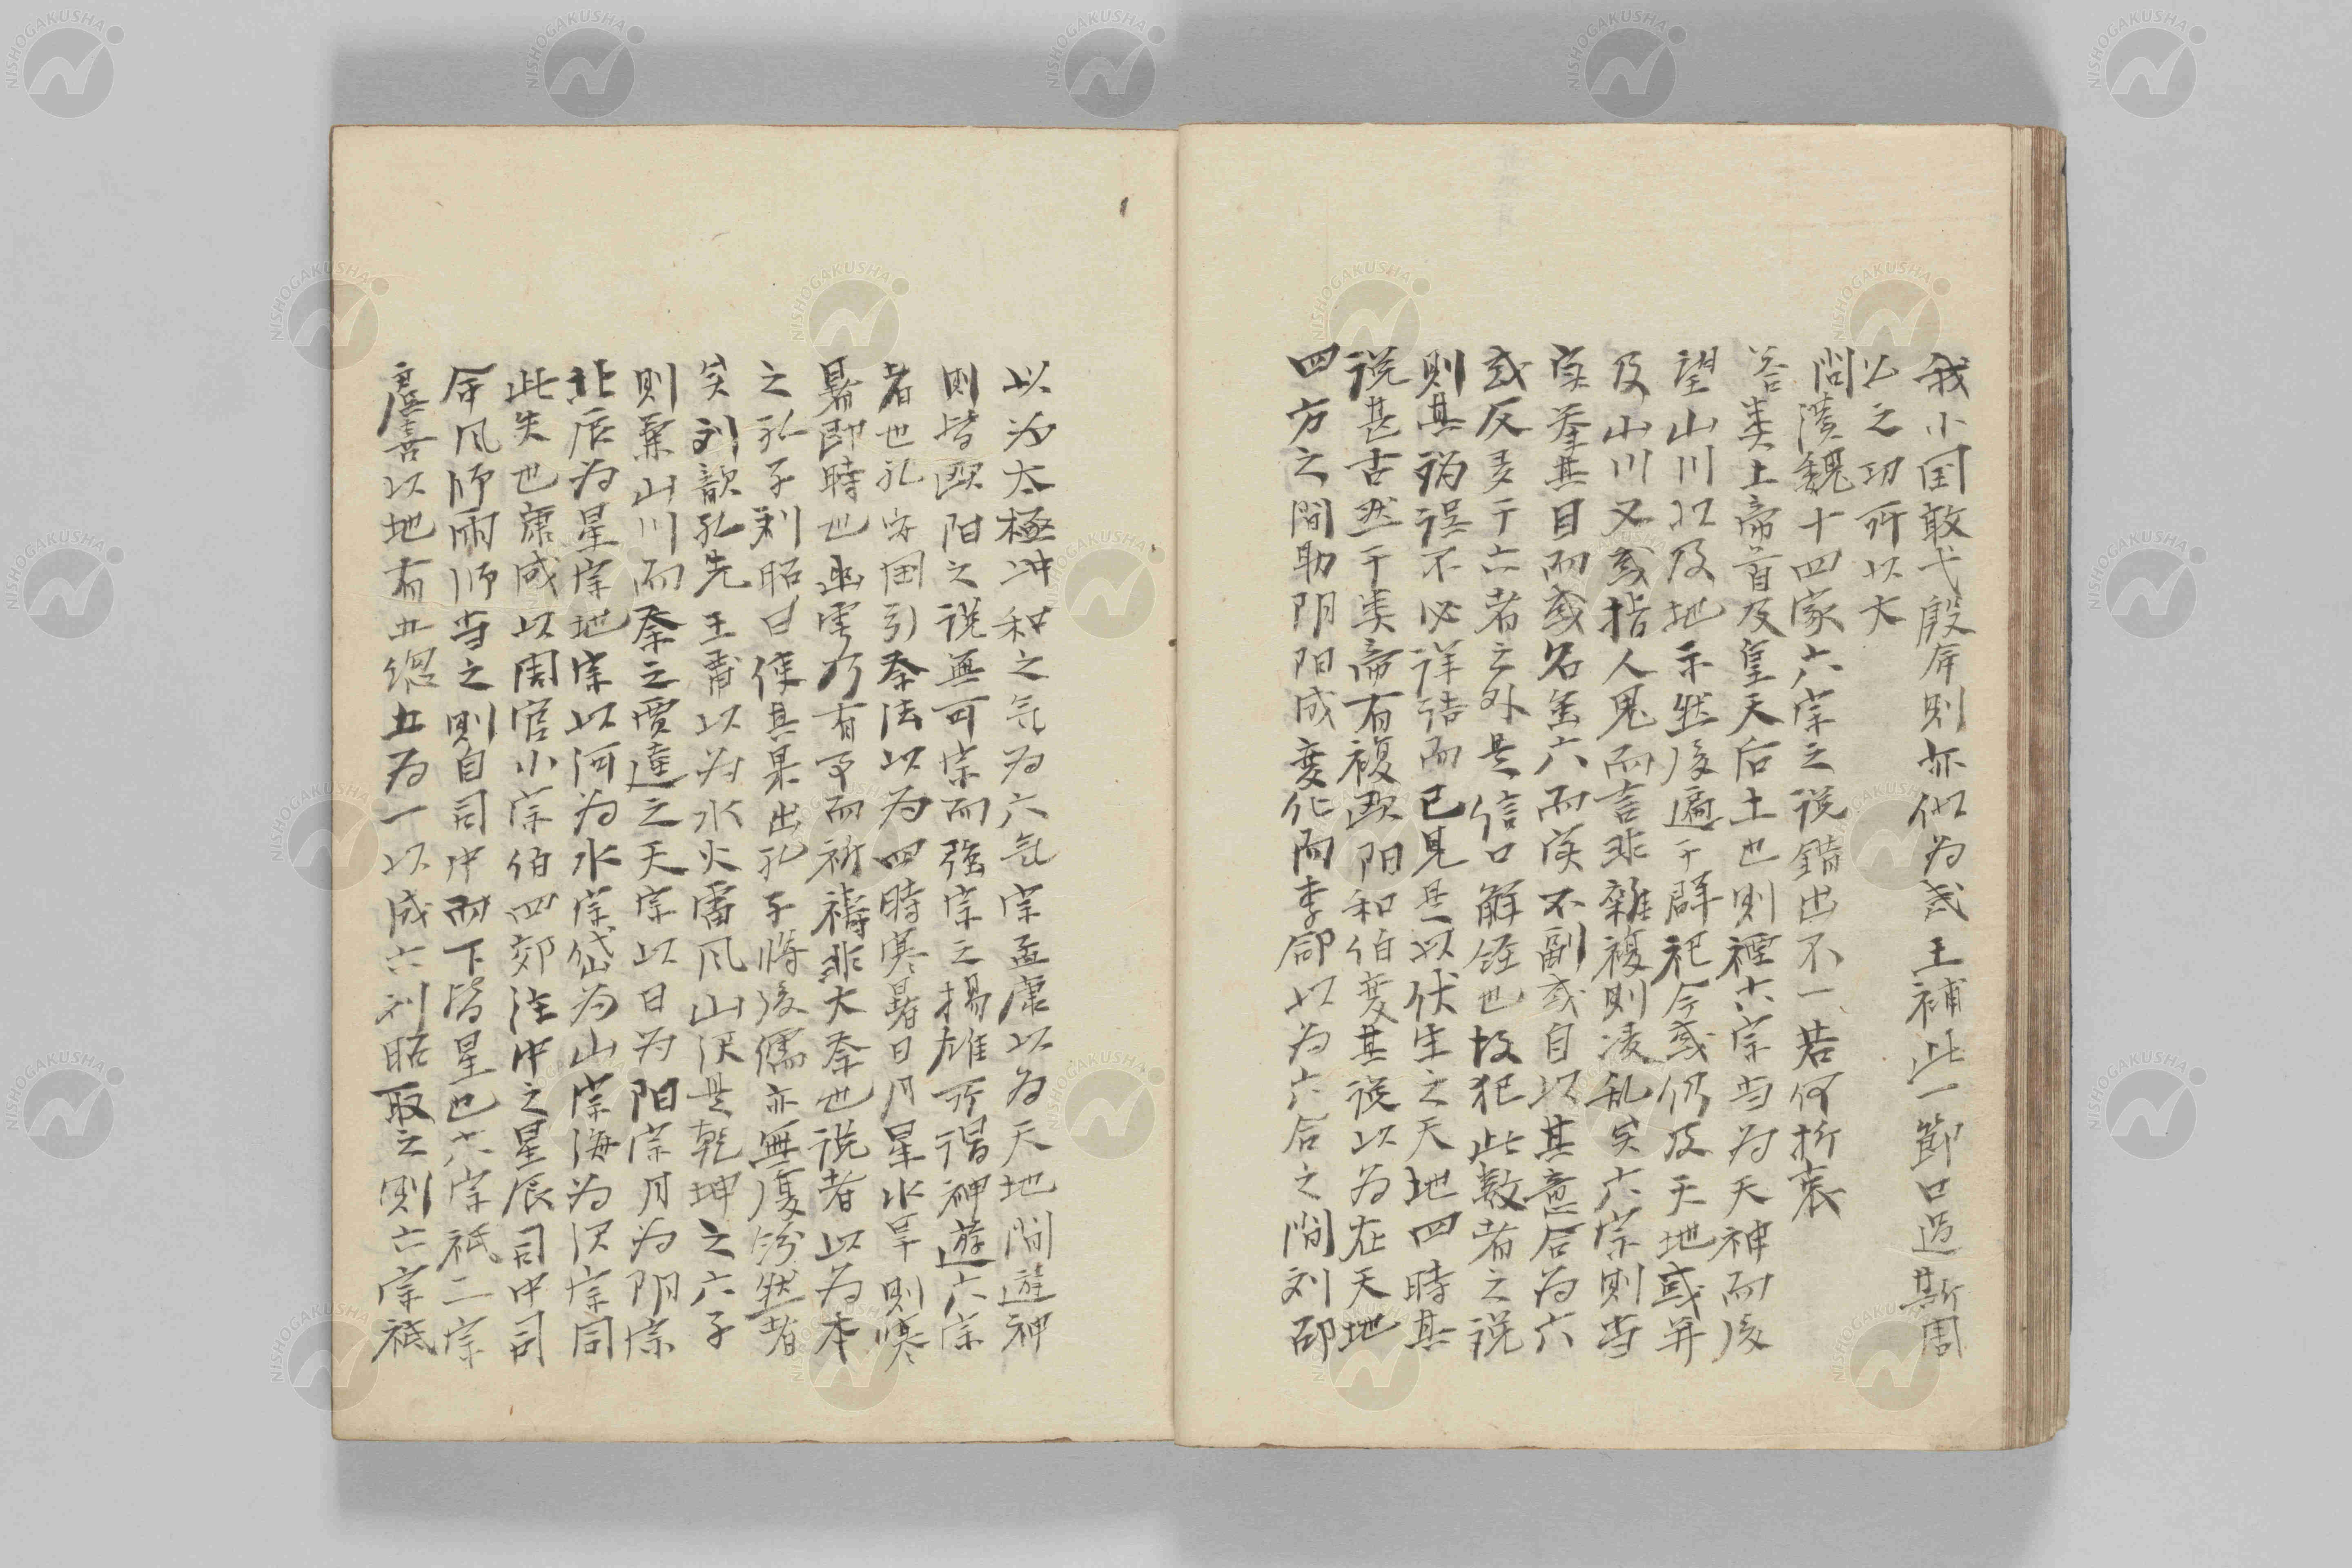 我小国敢弋殷屏則亦似为武王補此一節口過斯周
公之功所以大
問漢魏十四家六宗之说錯出不一若何折衷
答类上帝首及皇天后土也則禋六宗当为天神而後
望山川以及地示然後遍于群祀今或仍及天地或并
及山川又或指人鬼而言非雜複則凌乱矣六宗則当
实举其目而或名虽六而实不副或自以其意合为六
或反多于六者之外是信口解经也故犯此数者之说
則其锅误不必详诘而已見是以伏生之天地四時其
说甚古然于类帝有複欧阳和伯变其说以为在天地
四方之間助阴阳成变化而李郃以为六合之間刘邵
以为太極冲和之気为六気宗孟康以为天地間遊神
則皆欧阳之说無可宗而強宗之揚雄所谓神遊六宗
者也孔安国引祭法以为四時寒暑日月星水旱則寒
暑即時也幽雩乃有事而祈禱非大祭也说者以为本
之孔子刘昭曰使其果出孔子将後儒亦無復紛然者
矣刘歆孔光王莽以为水火雷风山沢是乾坤之六子
則兼山川而祭之賈逵之天宗以日为阳宗月为阴宗
北辰为星宗地宗以河为水宗岱为山宗海为沢宗同
此失也康成以周官小宗伯四郊注中之星辰司中司
命风师雨师当之則自司中而下皆星也六宗祇二宗
虞喜以地有五総五为一以成六刘昭取之則六宗祇